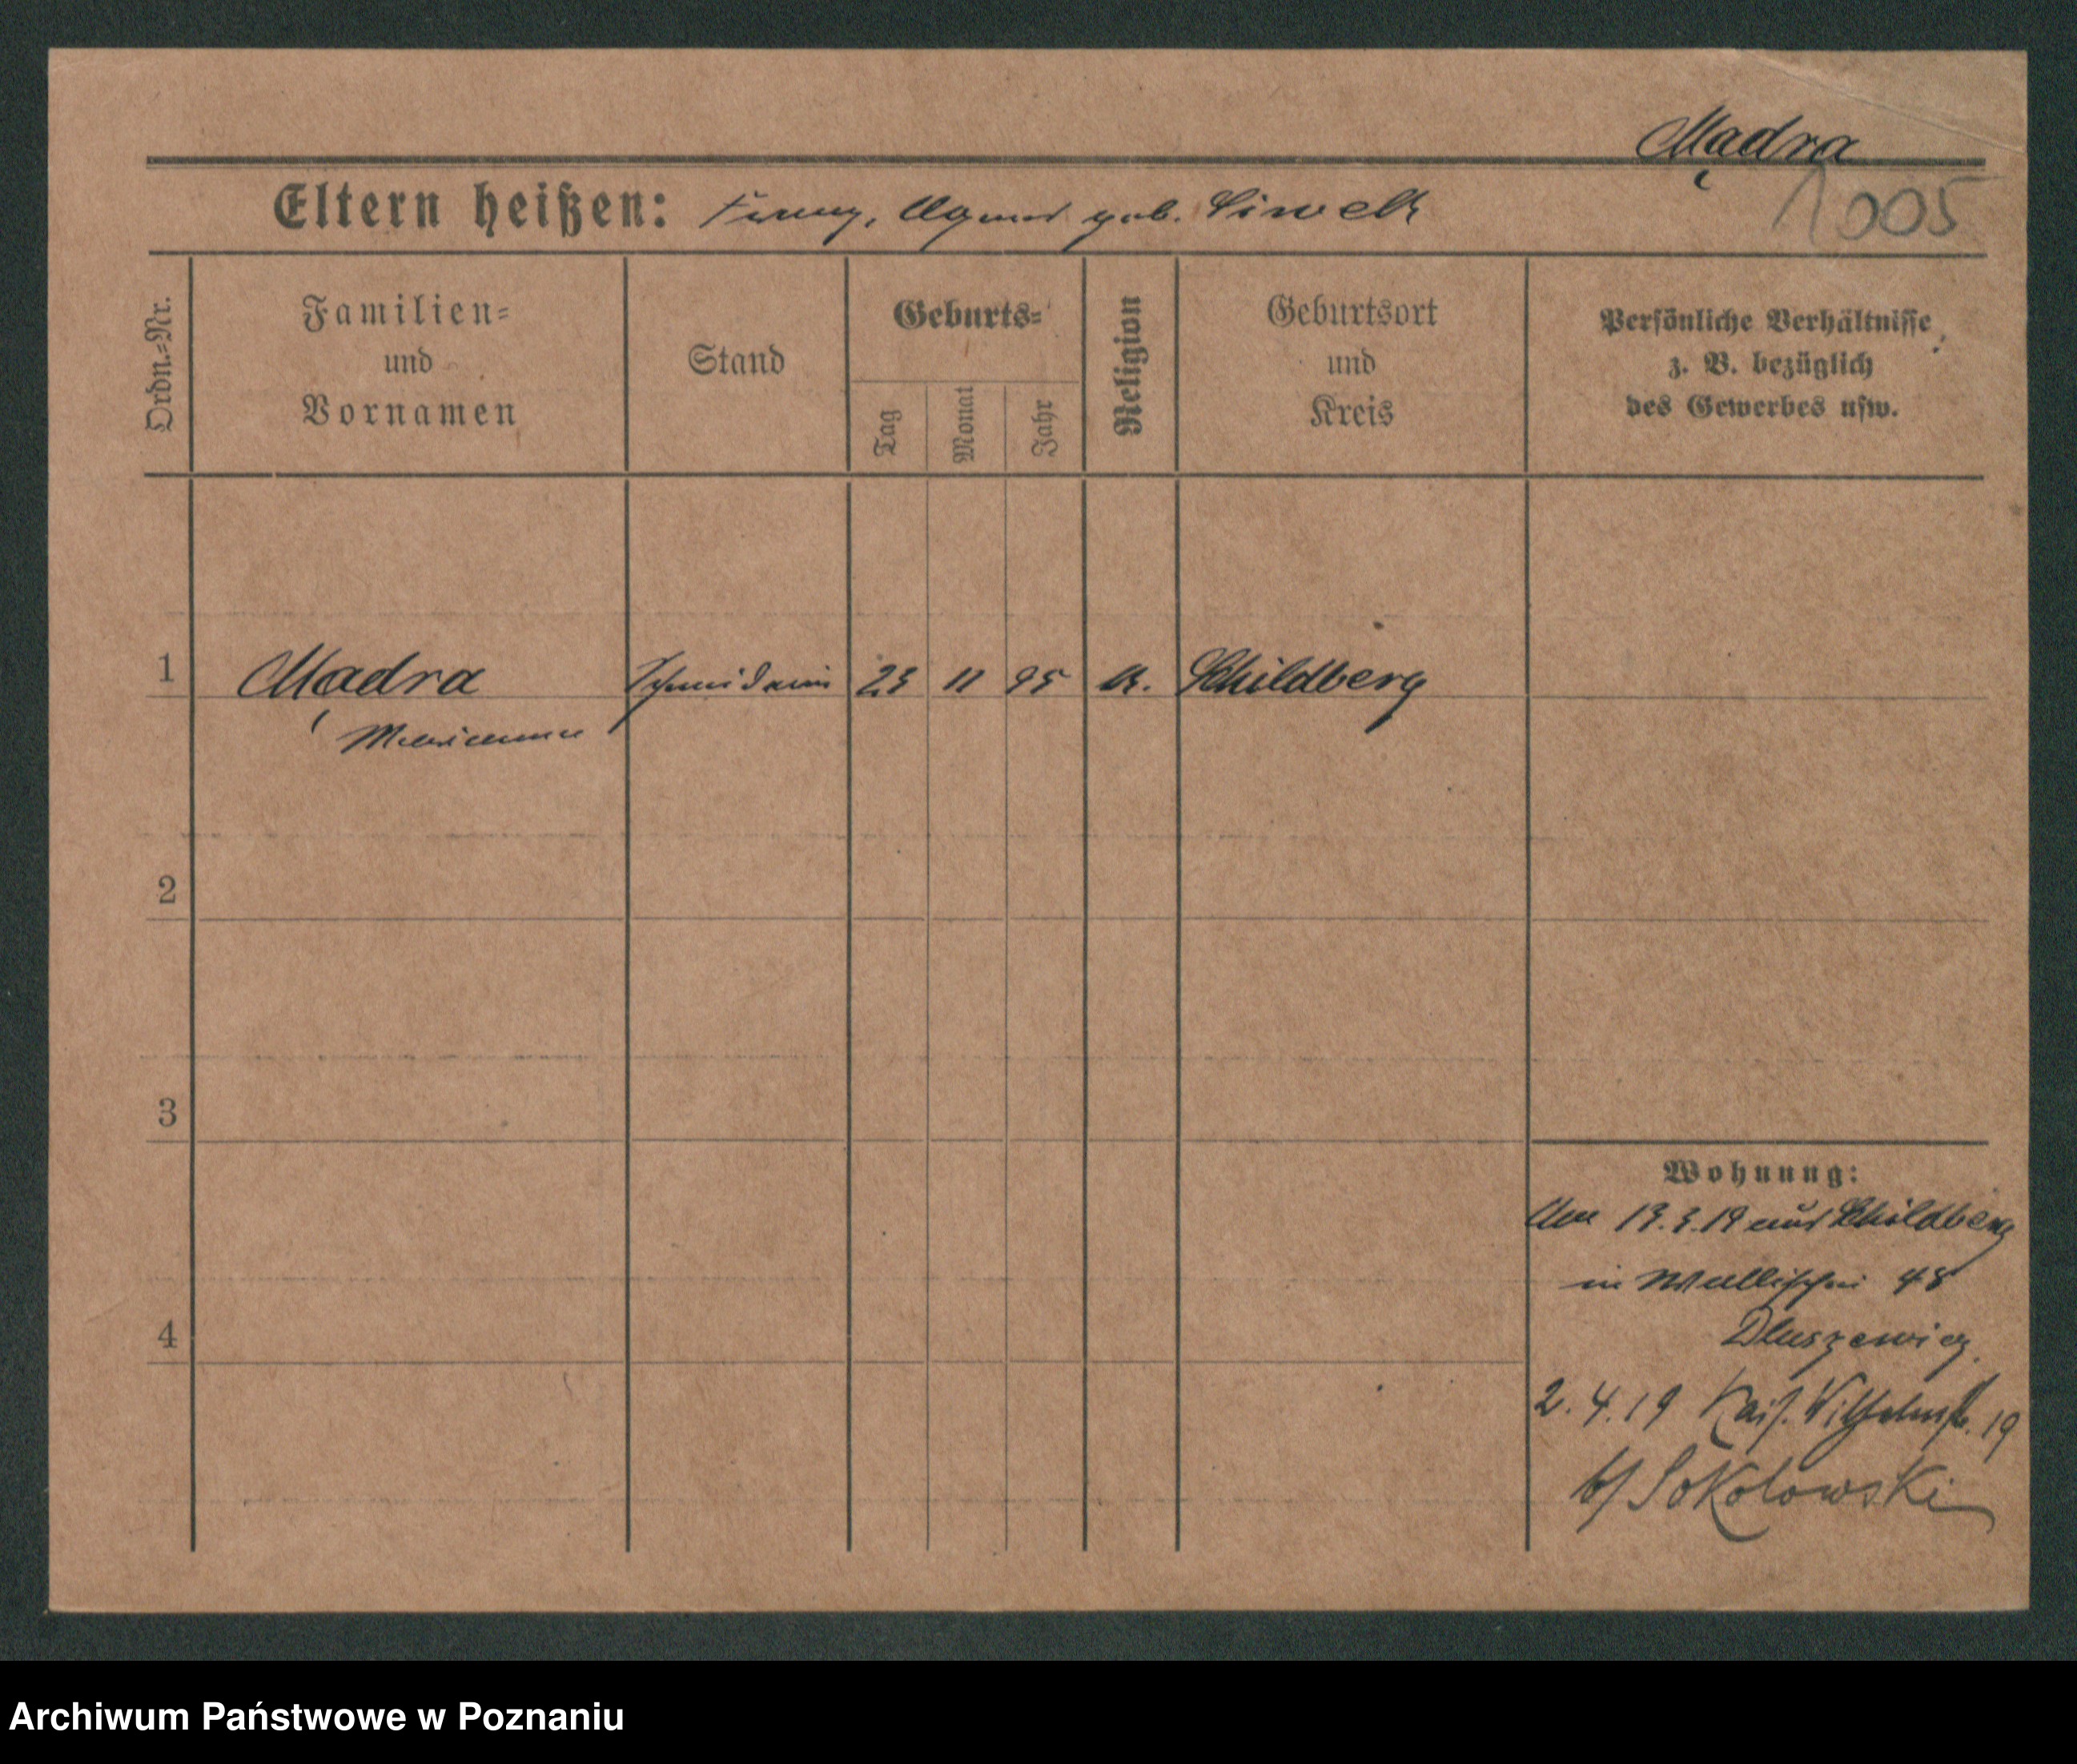 Mądra
1005
Eltern heißen: Franz, Agnes geb. Siwek
Ordn.=Nr.
Familien=
und
Vornamen
Stand
Geburts=
Tag
Monat
Jahr
Religion
Geburtsort
und
Kreis
Persönliche Verhältnisse
z. B. bezüglich
des Gewerbes usw.
1 Mądra Schneiderin 23 11 95 k. Schildberg
Marianna
2
3
4
Wohnung:
Am 13.3.19 aus Schildberg
in Wallischei 48
Dluszewicz
2.4.19 Kais. Wilhelmstr. 19
b/ Sokolowski
Archiwum Państwowe w Poznaniu